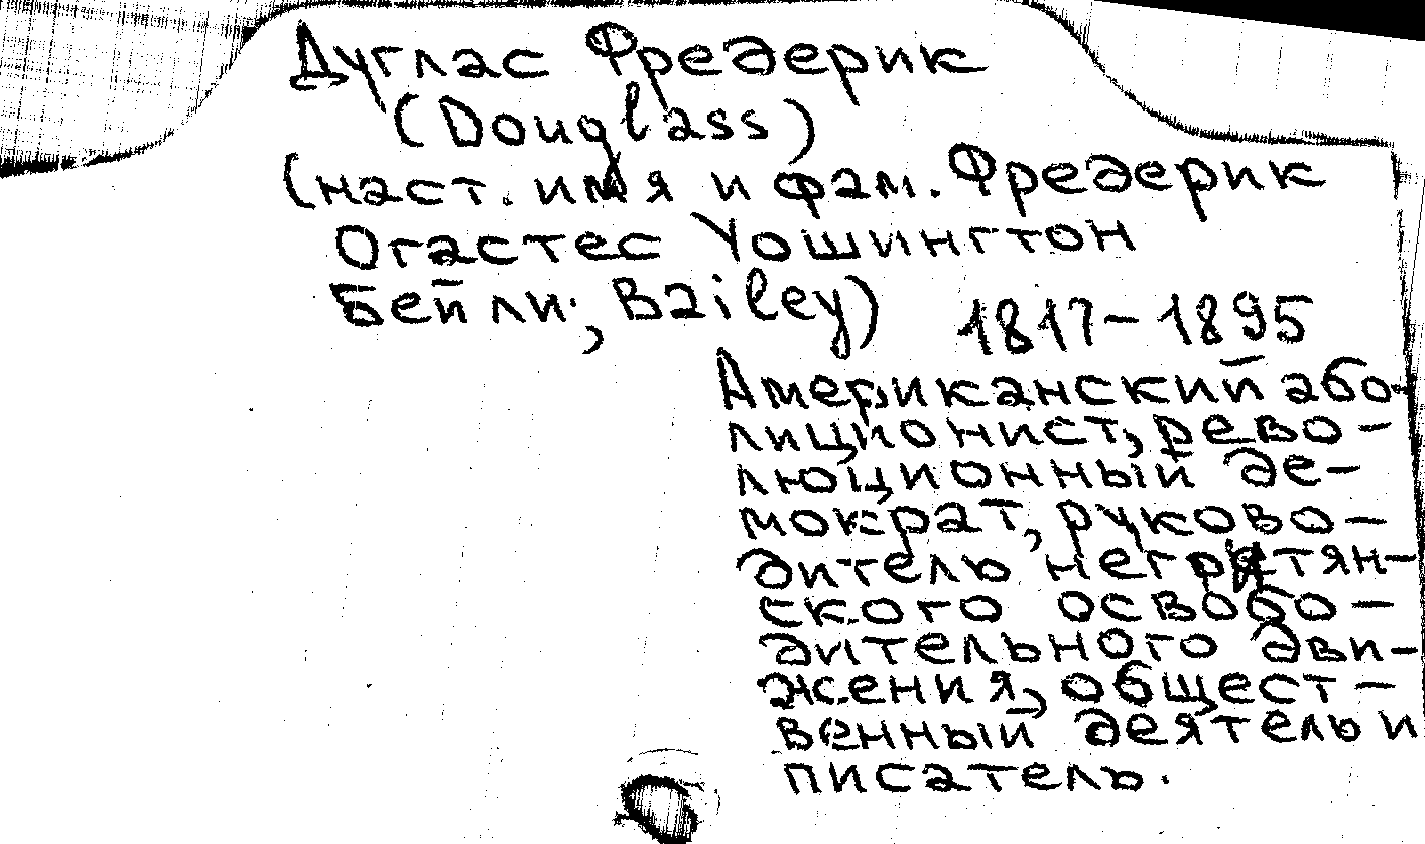 Дуглас Фредерик
(Douglass)
(наст. имя и фам. Фредерик
Огастес Уошингтон
Бейли; Bailey) 1817-1895
Американский або-
лиционист, рево-
люционный де-
мократ, руково-
дитель негритян-
ского освобо-
дительного дви-
жения, общест-
венный деятель и
писатель.